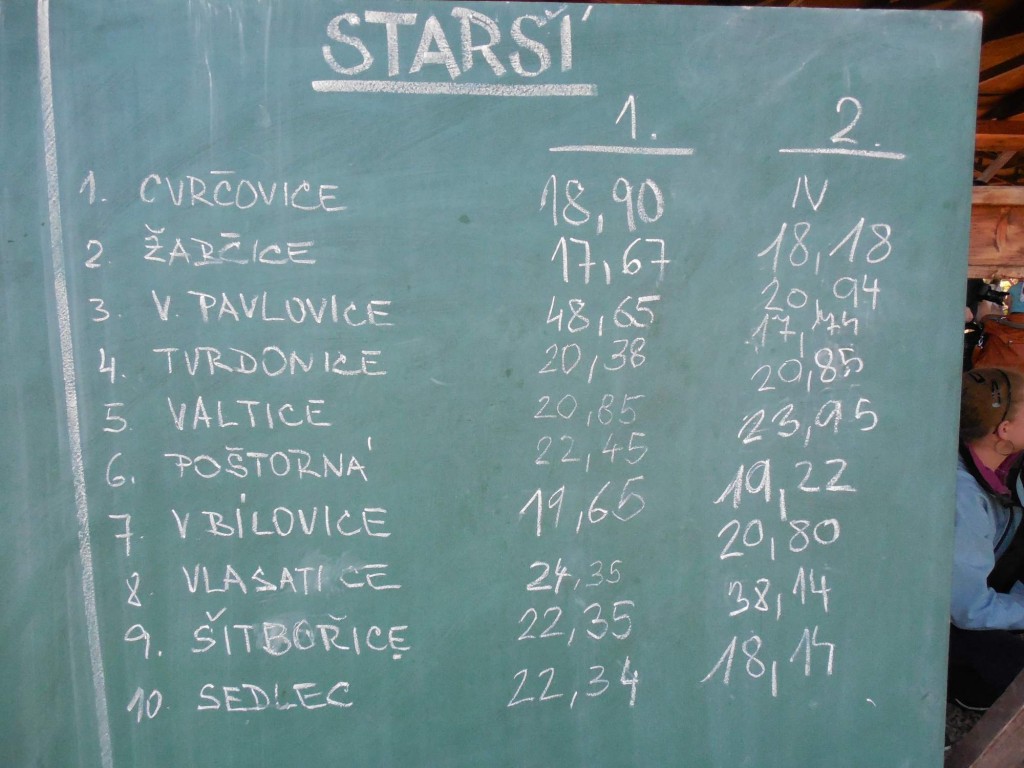 STARŠÍ
1. 2.
1. CVRČOVICE 18,90 IV
2. ŽABČICE 17,67 18,18
3. V. PAVLOVICE 48,65 20,94
4. TVRDONICE 20,38 17,74
5. VALTICE 20,85 20,85
6. POŠTORNÁ 22,45 23,95
7. V BÍLOVICE 19,65 19,22
8. VLASATICE 24,35 20,80
9. ŠITBOŘICE 22,35 38,14
10. SEDLEC 22,34 18,14